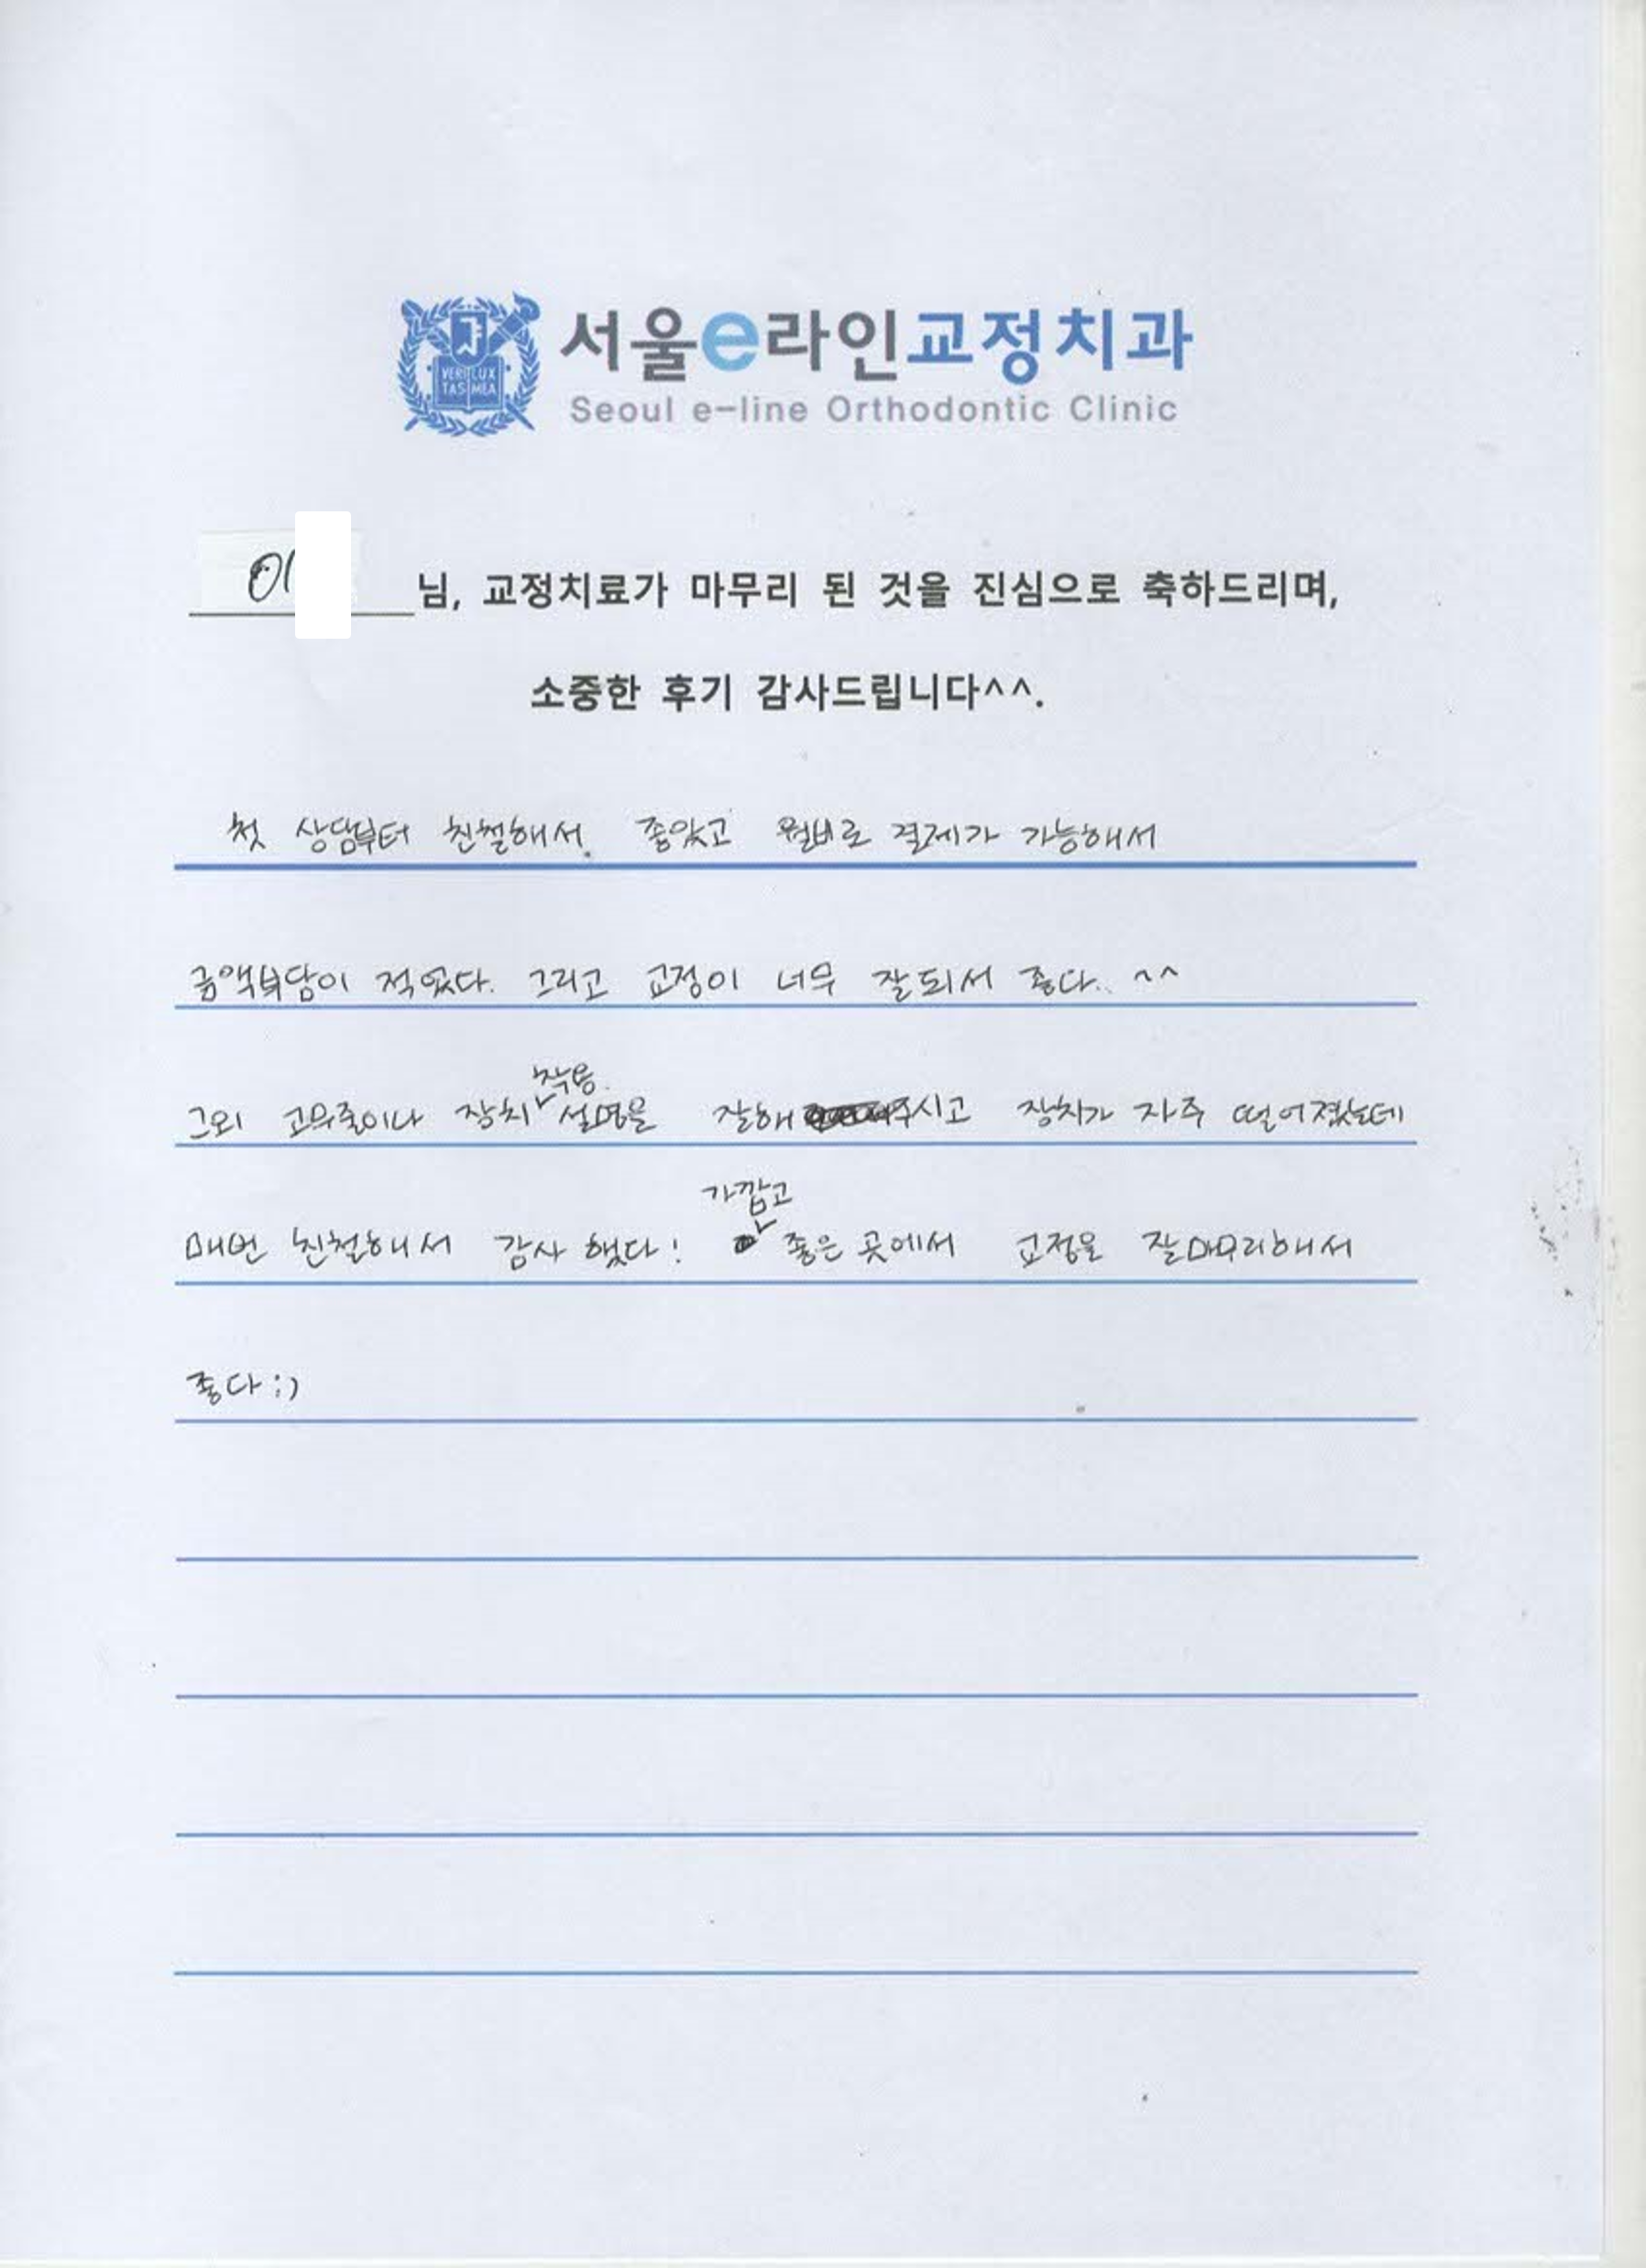 서울e라인교정치과
Seoul e-line Orthodontic Clinic
VERI LUX
TAS MEA
이 님, 교정치료가 마무리 된 것을 진심으로 축하드리며,
소중한 후기 감사드립니다^^.
첫 상담부터 친절해서 좋았고 월비로 결제가 가능해서
금액부담이 적었다. 그리고 교정이 너무 잘되서 좋다.. ^^
그외 고무줄이나 장치 착용 설명을 잘해 주시고 장치가 자주 떨어졌는데
매번 친절해서 감사 했다! 가깝고 좋은 곳에서 교정을 잘마무리해서
좋다 :)